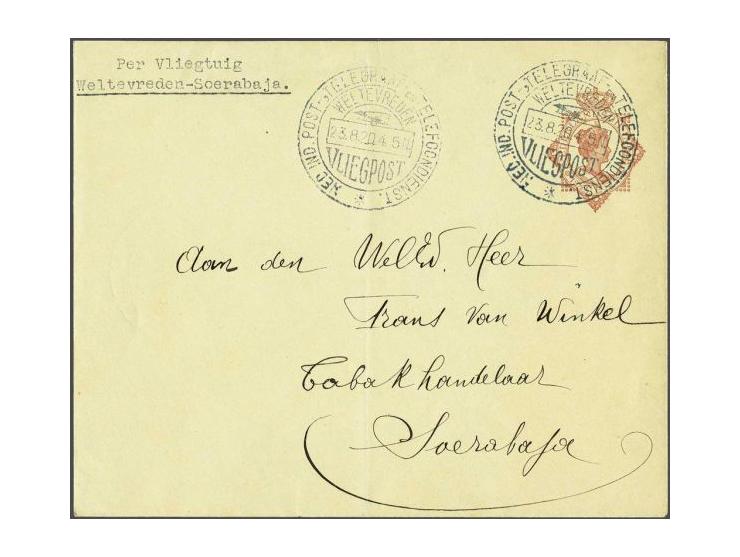 Per Vliegtuig
Weltevreden-Soerabaja.
NED. IND. POST- TELEGRAAF- TELEFOONDIENST.
WELTEVREDEN
23.8.20. 4.5/N
VLIEGPOST
NED. IND. POST- TELEGRAAF- TELEFOONDIENST
WELTEVREDEN
23.8.20. 4.5/N
VLIEGPOST
Aan den WelEd. Heer
Frans van Winkel
Tabakhandelaar
Soerabaja